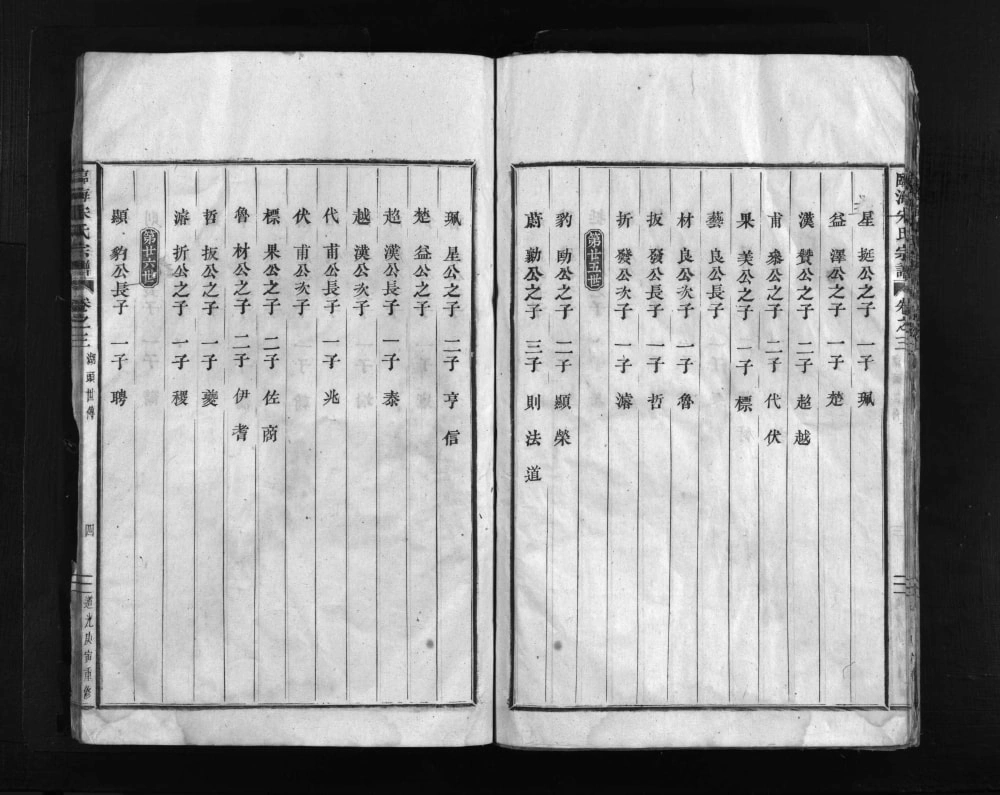 星 挺公之子 一子 珮
益 澤公之子 一子 楚
漢 贊公之子 二子 超 越
甫 桑公之子 二子 代 伏
果 美公之子 一子 標
藝 良公長子
材 良公次子 一子 魯
扳 發公長子 一子 哲
折 發公次子 一子 濬
第廿五世
豹 勛公之子 二子 顯 榮
蔚 勤公之子 三子 則 法 道
珮 星公之子 二子 亨 信
楚 益公之子
超 漢公長子 一子 泰
越 漢公次子
代 甫公長子 一子 兆
伏 甫公次子
標 果公之子 二子 佐 商
魯 材公之子 二子 伊 耆
哲 扳公之子 一子 夔
濬 折公之子 一子 稷
第廿六世
顯 豹公長子 一子 聘
臨海宋氏宗譜 卷之三 湖頭世傳 四 道光庚寅重修